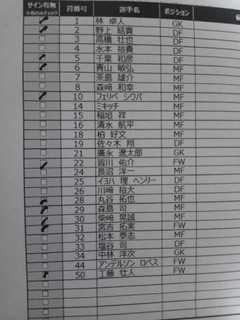 サイン有無 背番号 選手名 ポジション
1 林 卓人 GK
2 野上 結貴 DF
3 高橋 壮也 DF
4 水本 裕貴 DF
5 千葉 和彦 DF
6 青山 敏弘 MF
7 茶島 雄介 MF
8 森﨑 和幸 MF
10 フェリペ シウバ MF
14 ミキッチ MF
15 稲垣 祥 MF
16 清水 航平 MF
18 柏 好文 MF
19 佐々木 翔 DF
21 廣永 遼太郎 GK
22 皆川 佑介 FW
24 長沼 洋一 MF
25 イヨハ 理 ヘンリー DF
26 川﨑 裕大 MF
28 丸谷 拓也 MF
29 森島 司 MF
30 柴﨑 晃誠 MF
31 宮吉 拓実 FW
32 松本 泰志 MF
33 塩谷 司 DF
34 中林 洋次 GK
44 アンデルソン ロペス FW
50 工藤 壮人 FW